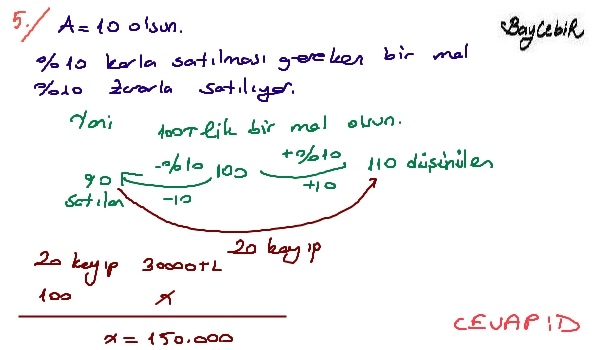 5./ A=10 olsun.
BayCebiR
%10 karla satılması gereken bir mal
%10 zararla satılıyor.
Yani 100TLlik bir mal olsun.
-%10 +%10
90 100 110 düşünülen
satılan -10 +10
20 kayıp
20 kayıp 30000TL
100 x
x = 150.000
CEVAP:D